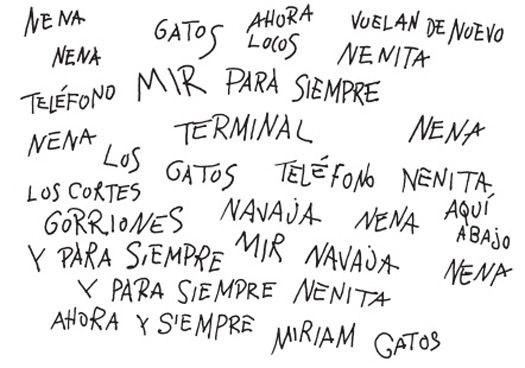 NENA GATOS AHORA LOCOS VUELAN DE NUEVO
NENA NENITA
TELÉFONO MIR PARA SIEMPRE
NENA TERMINAL NENA
LOS GATOS TELÉFONO NENITA
LOS CORTES
GORRIONES NAVAJA NENA AQUÍ ABAJO
Y PARA SIEMPRE MIR NAVAJA NENA
Y PARA SIEMPRE NENITA
AHORA Y SIEMPRE MIRIAM GATOS